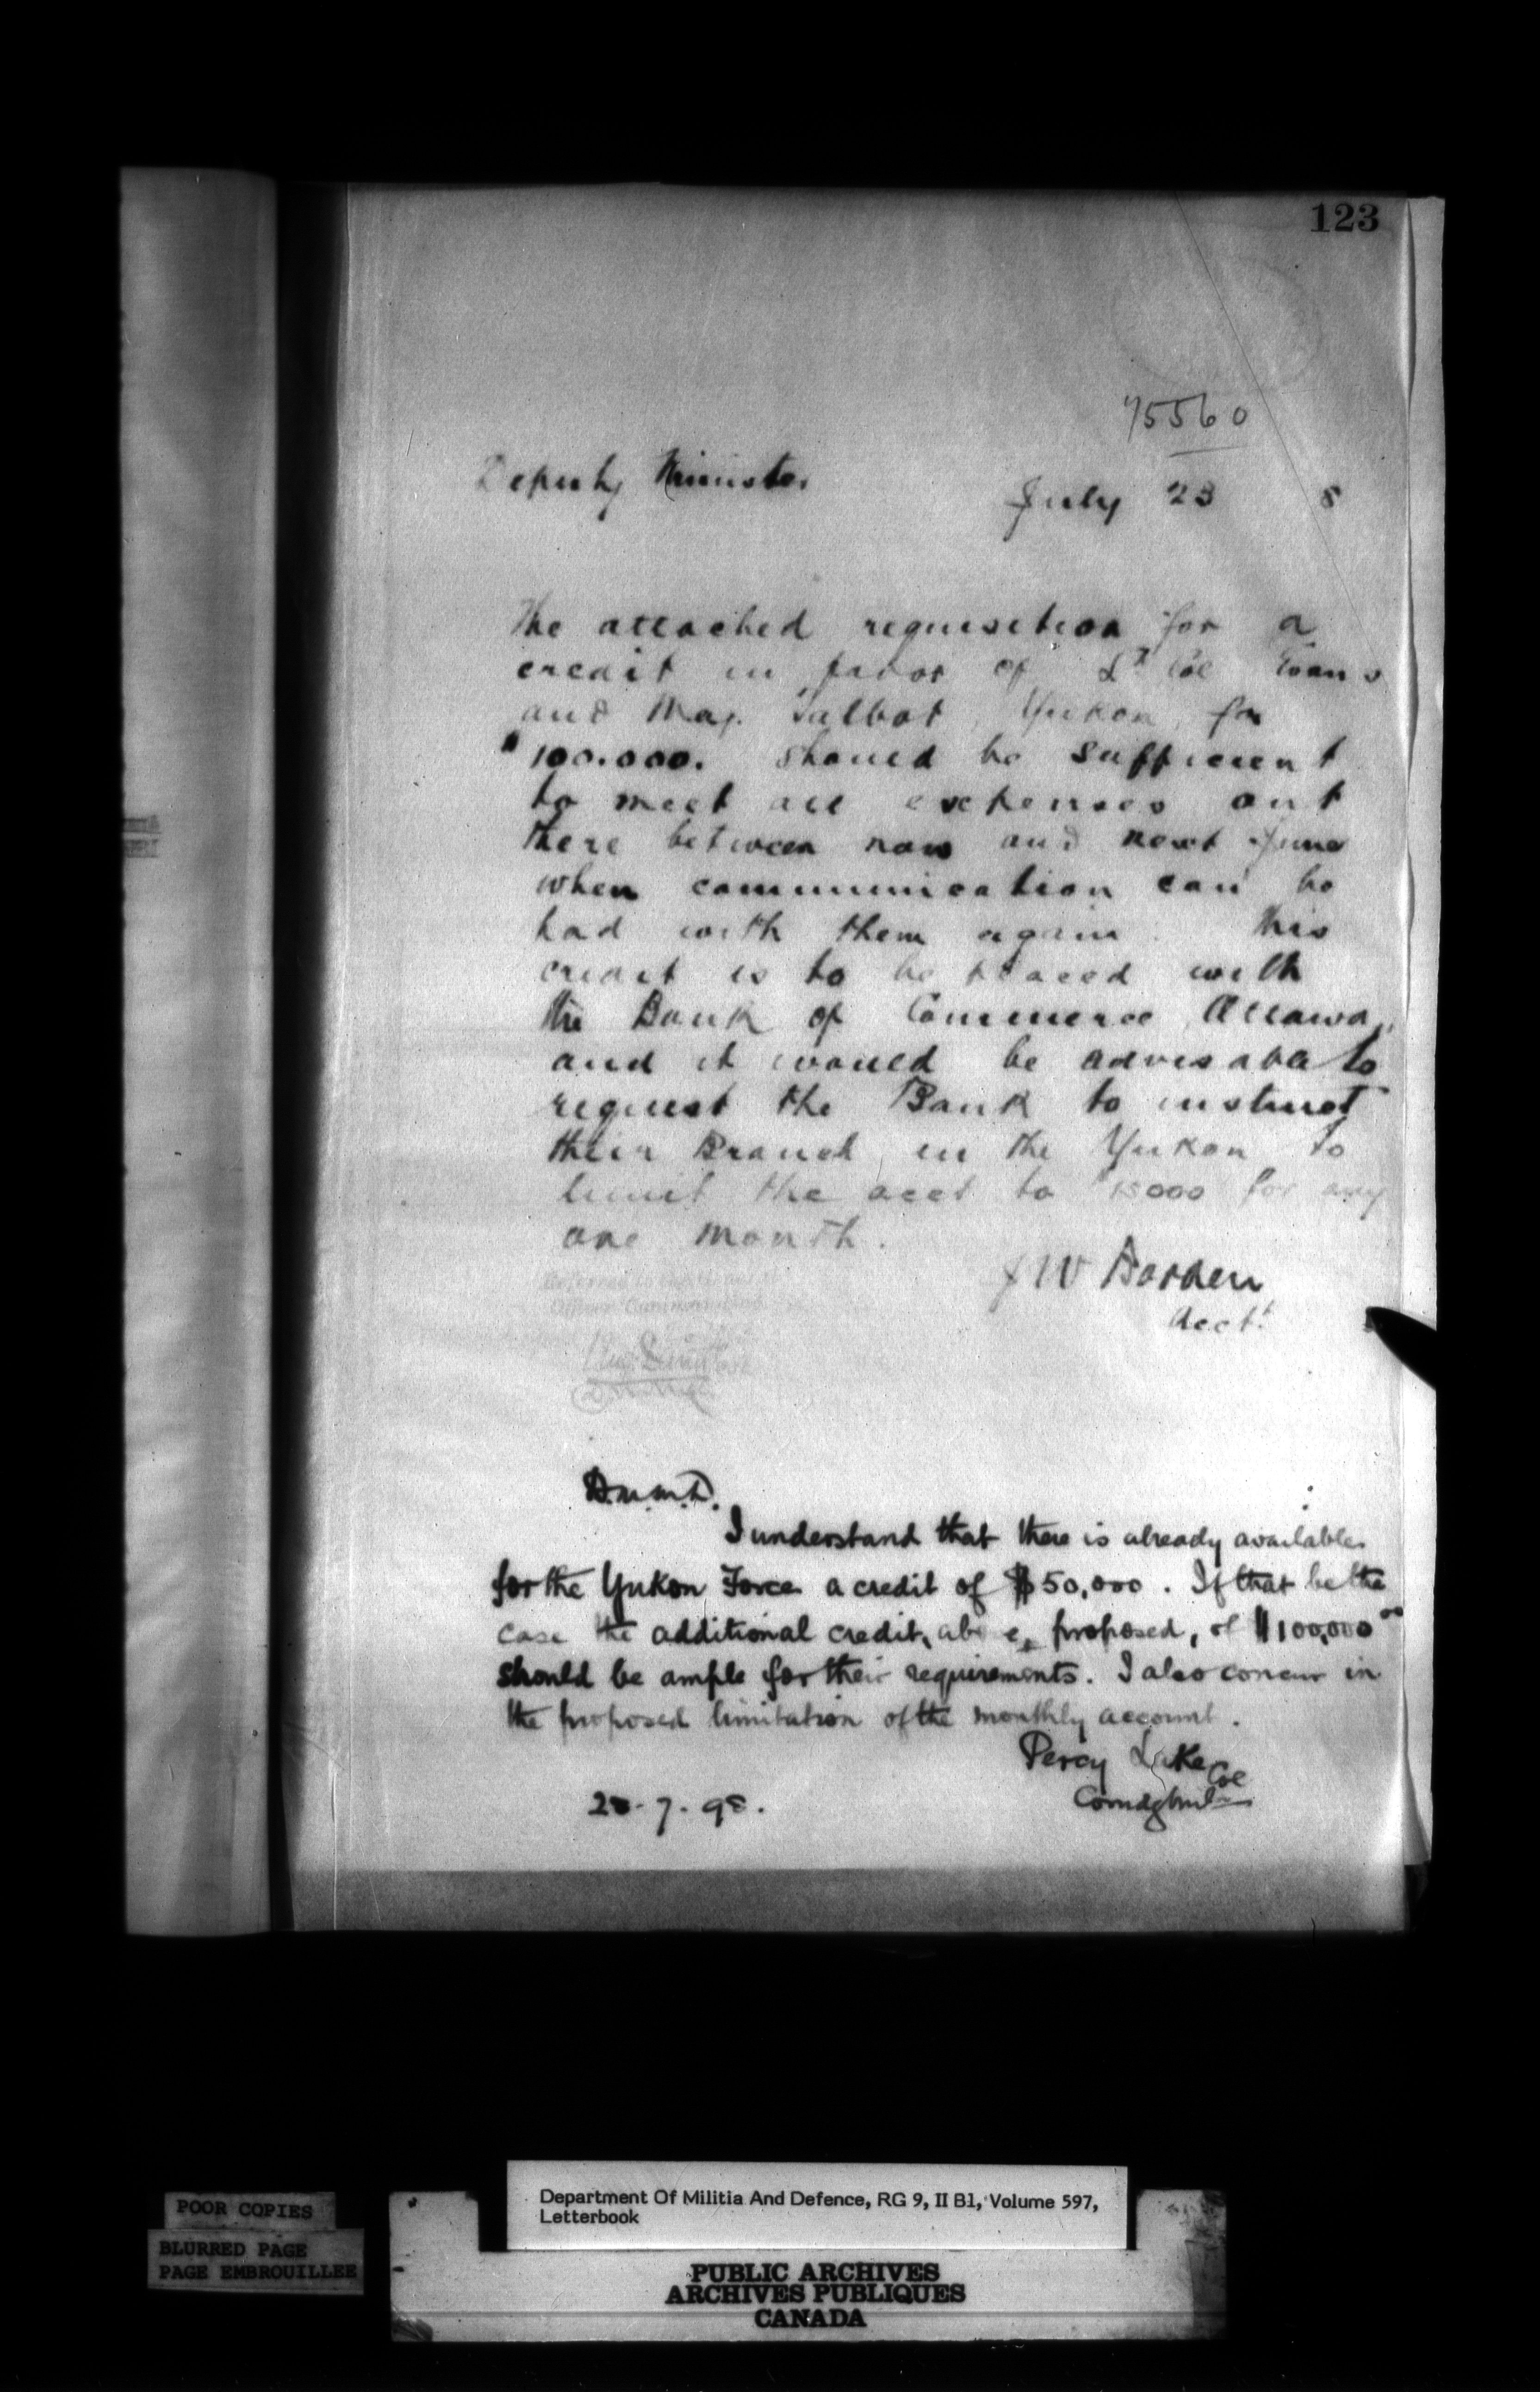 123
75560
Deputy Minister
July 23 8
The attached requisition for a
credit in favor of Lt Col Evans
and Maj. Talbot, Yukon, for
$100.000. should be sufficient
to meet all expenses out
there between now and next June
when communication can be
had with them again. This
credit is to be placed with
the Bank of Commerce, Ottawa,
and it would be advisable to
request the Bank to instruct
their Branch, in the Yukon to
limit the acct to $15000 for any
one month.
J W Borden
Acct.
Referred to
Officer Commanding
D.M.M.D.
I understand that there is already available
for the Yukon Force a credit of $50,000. If that be the
case the additional credit, above, proposed, of $100,000.00
should be ample for their requirements. I also concur in
the proposed limitation of the monthly account.
Percy Lake Col
7.98.
Department Of Militia And Defence, RG 9, II B1, Volume 597,
Letterbook
POOR COPIES
BLURRED PAGE
PAGE EMBROUILLEE
PUBLIC ARCHIVES
ARCHIVES PUBLIQUES
CANADA